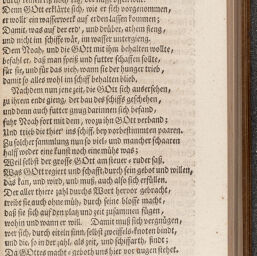 Denn GOtt erklärte sich, wie er sich vorgenommen,
er wollt' ein wasserweck auf erden lassen kommen;
Damit, was auf der erd', und drüber, athem fieng,
und nicht im schiffe wär, im wasser untergieng.
Dem Noah, und die GOtt mit ihm behalten wollte,
befahl er, daß man speiß und futter schaffen sollte,
für sie, und für das vieh, wann sie der hunger trieb,
damit so alles wohl im schiff behalten blieb.
Nachdem nun jene zeit, die GOtt sich ausersehen,
zu ihrem ende gieng, der bau des schiffs geschehen,
und denn auch futter gnug darinnen sich befand,
fuhr Noah fort mit dem, wozu ihn GOtt verband;
Und trieb die thier' ins schiff, bey vorbestimmten paaren.
Zu solcher sammlung nun so viel- und mancher schaaren
half weder eine kunst noch eine müh was;
Weil selbst der grosse GOtt am steuer-ruder saß.
Was GOtt regiert und schafft durch sein gebot und willen,
das kan, und wird, und muß, auch also sich erfüllen.
Der aller thiere zahl durchs Wort hervor gebracht,
triebe sie auch ohne müh, durch seine blosse macht,
daß sie sich auf den platz und zeit zusammen fügen,
wohin und wann er will. Damit muß sich vergnügen,
wer sich, durch eiteln sinn, selbst zweiffels-knoten bindt,
und die, so in der zahl, als zeit, und schiffarth, findt;
Da GOttes macht